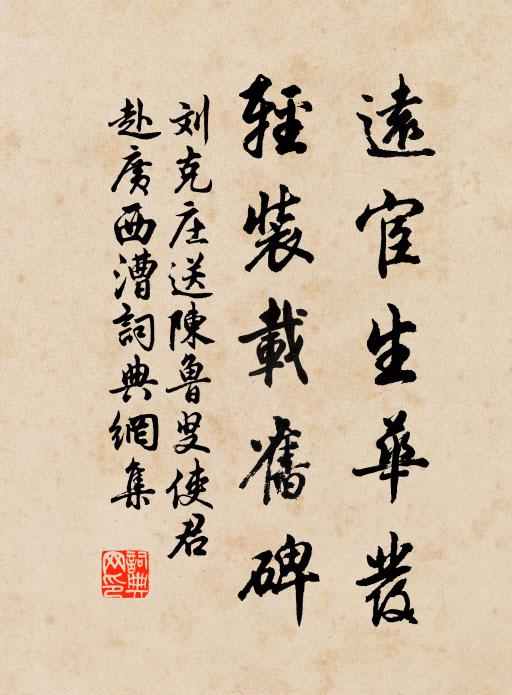 遠宦生華髮
輕裝載舊碑
刘克庄送陳魯叟使君
赴廣西漕詞典網集
詞典
网印